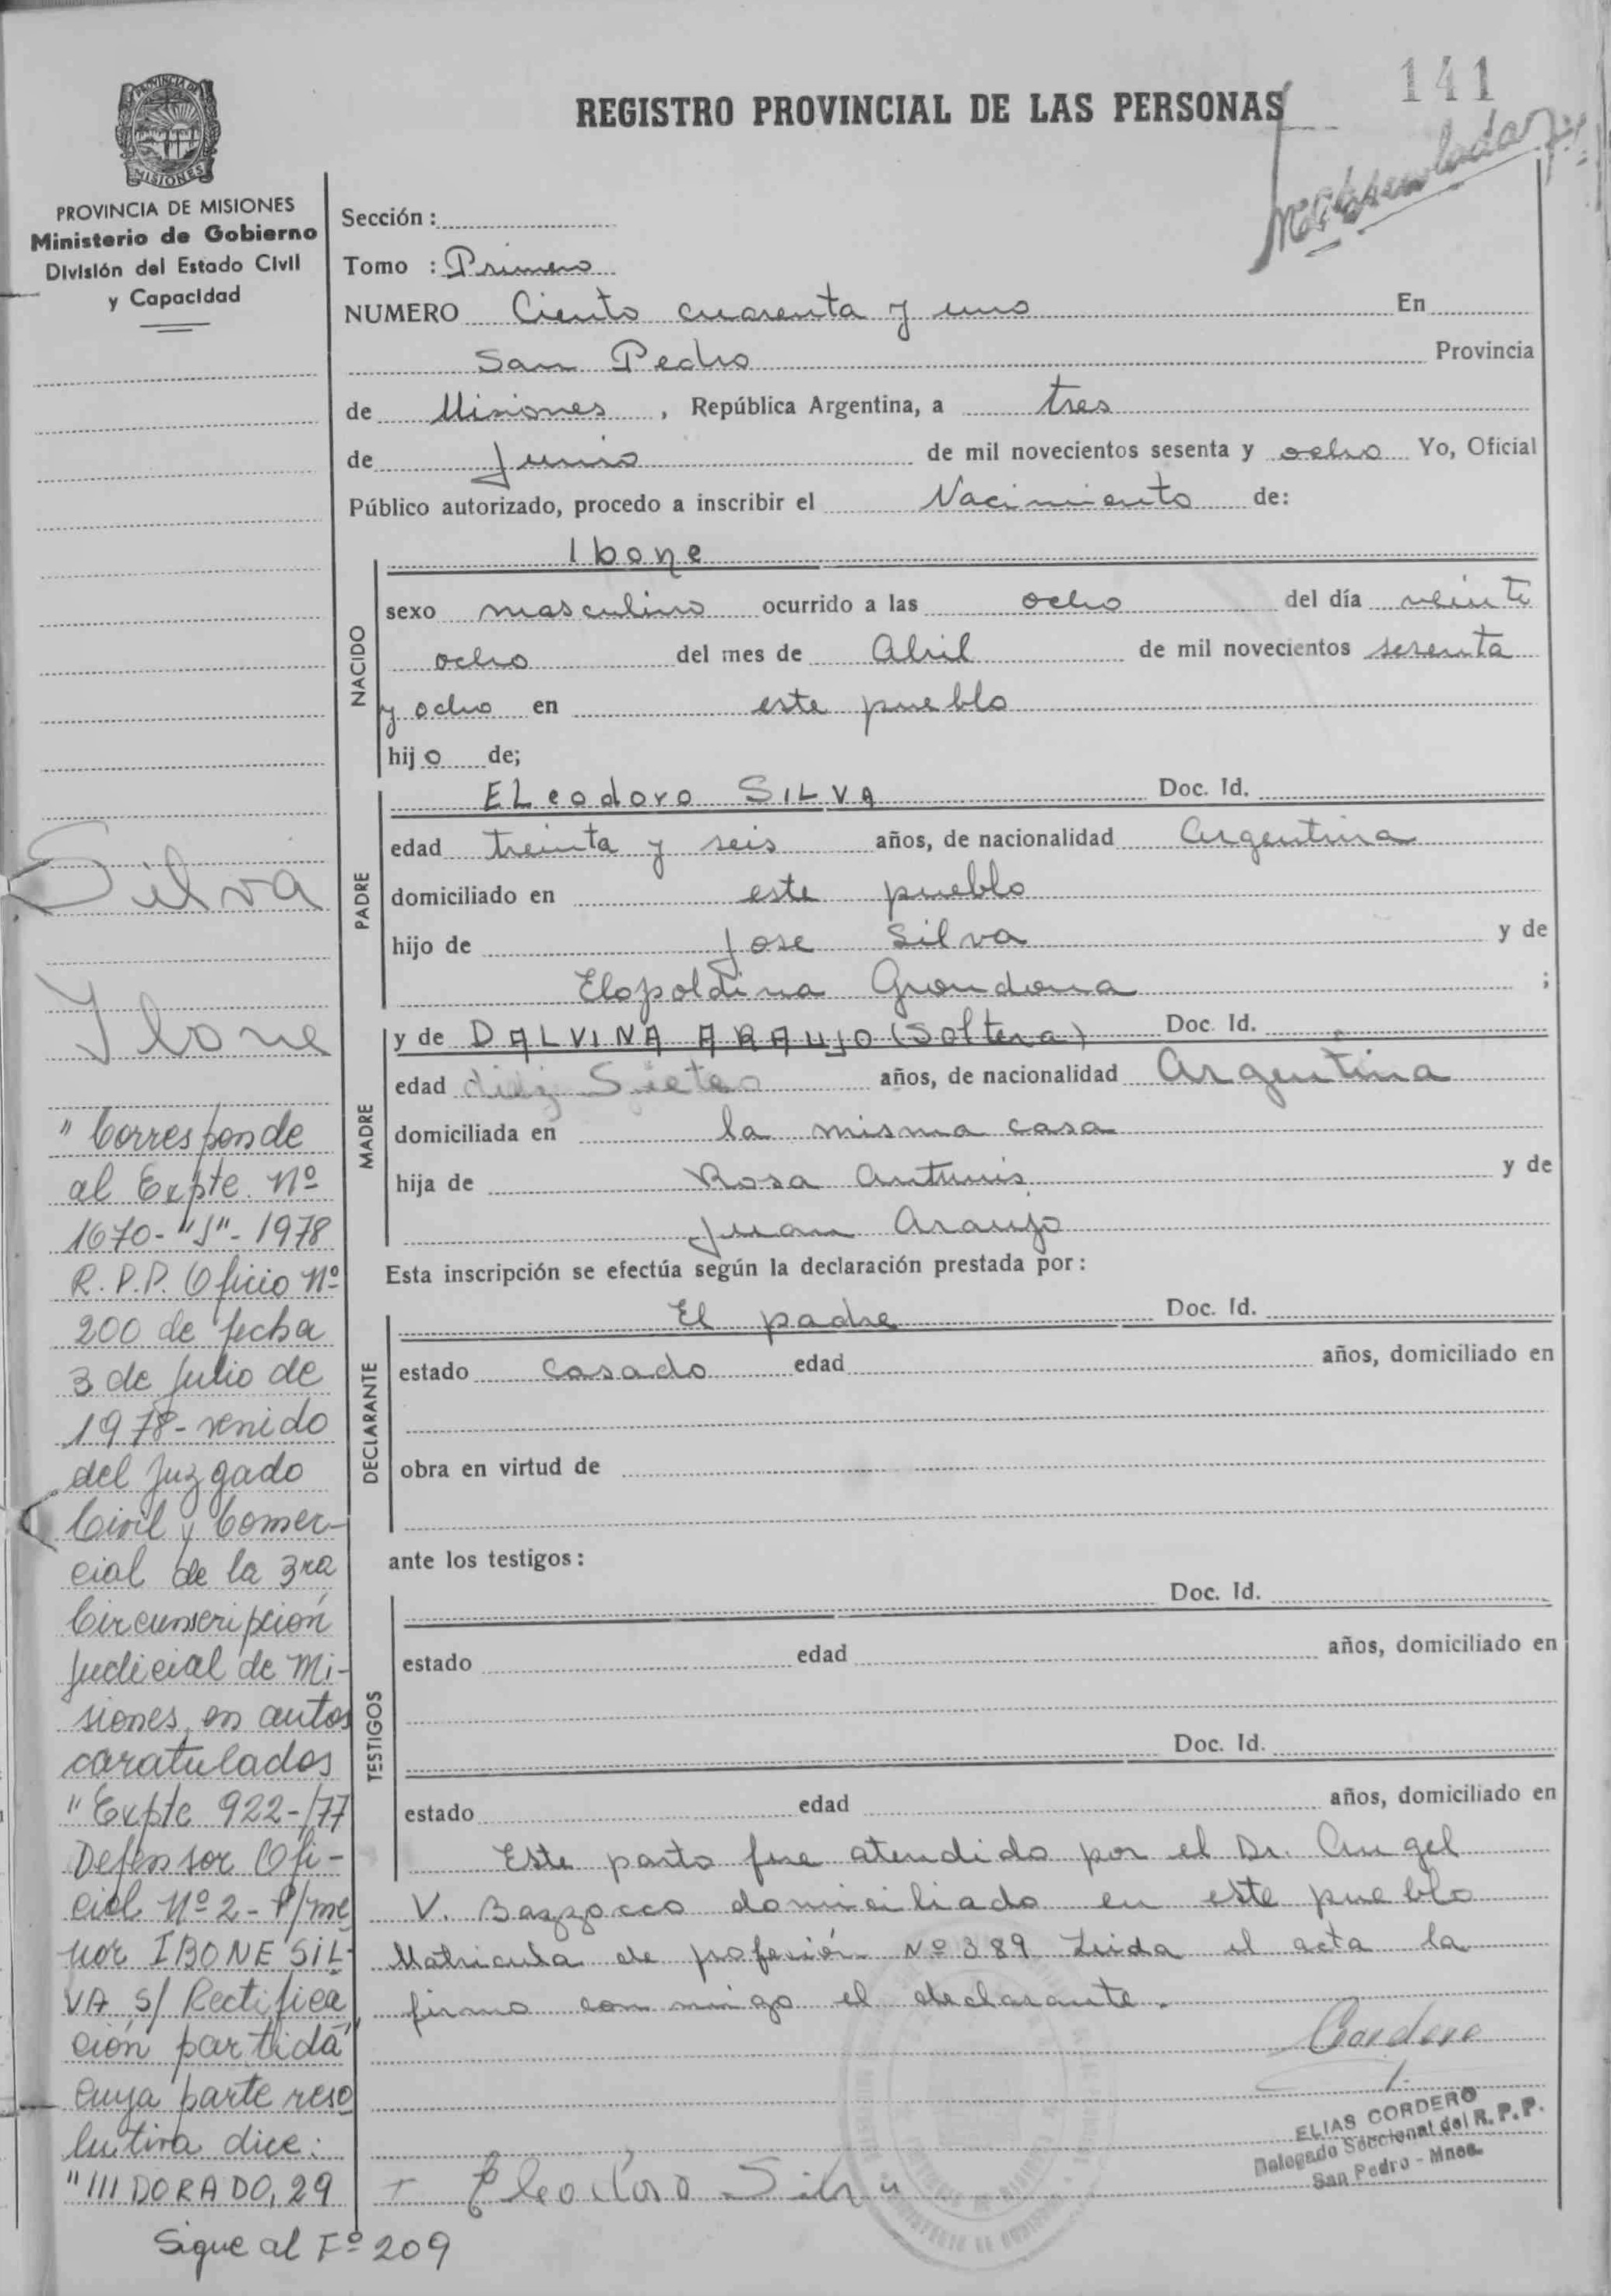 141
REGISTRO PROVINCIAL DE LAS PERSONAS
PROVINCIA DE MISIONES
Ministerio de Gobierno
División del Estado Civil
y Capacidad
Sección :
Tomo : Primero
NUMERO Ciento cuarenta y uno En
San Pedro Provincia
de Misiones , República Argentina, a tres
de Junio de mil novecientos sesenta y ocho Yo, Oficial
Público autorizado, procedo a inscribir el Nacimiento de:
NACIDO
Ibone
sexo masculino ocurrido a las ocho del día veinte
ocho del mes de Abril de mil novecientos sesenta
y ocho en este pueblo
hijo de;
PADRE
ELeodoro SILVA Doc. Id.
edad treinta y seis años, de nacionalidad Argentina
domiciliado en este pueblo
hijo de Jose Silva y de
Elopoldina Grondona ;
MADRE
y de DALVINA ARAUJO (Soltera) Doc. Id.
edad diez Siete años, de nacionalidad Argentina
domiciliada en la misma casa
hija de Rosa Antunis y de
Juan Araujo
Esta inscripción se efectúa según la declaración prestada por :
DECLARANTE
El padre Doc. Id.
estado Casado edad años, domiciliado en
obra en virtud de
ante los testigos :
TESTIGOS
Doc. Id.
estado edad años, domiciliado en
Doc. Id.
estado edad años, domiciliado en
Este parto fue atendido por el Dr. Angel
V. Bazzocco domiciliado en este pueblo
Matricula de profesión Nº 389 Leida el acta la
firma conmigo el declarante.
Cordero
ELIAS CORDERO
Delegado Seccional del R. P. P.
San Pedro - Mnes.
Eleodoro Silva
Silva
Ibone
" Corresponde
al Expte. Nº
1670-"S"- 1978
R. P.P. Oficio Nº
200 de fecha
3 de Julio de
1978- venido
del Juzgado
Civil y Comer-
cial de la 3ra
Circunscripción
Judicial de Mi-
siones, en autos
caratulados
"Expte 922-/77
Defensor Ofi-
cial Nº 2- P/me
nor IBONE SIL-
VA S/ Rectifica
ción partida"
cuya parte reso
lutiva dice:
"///DORADO, 29
Sigue al Fº 209